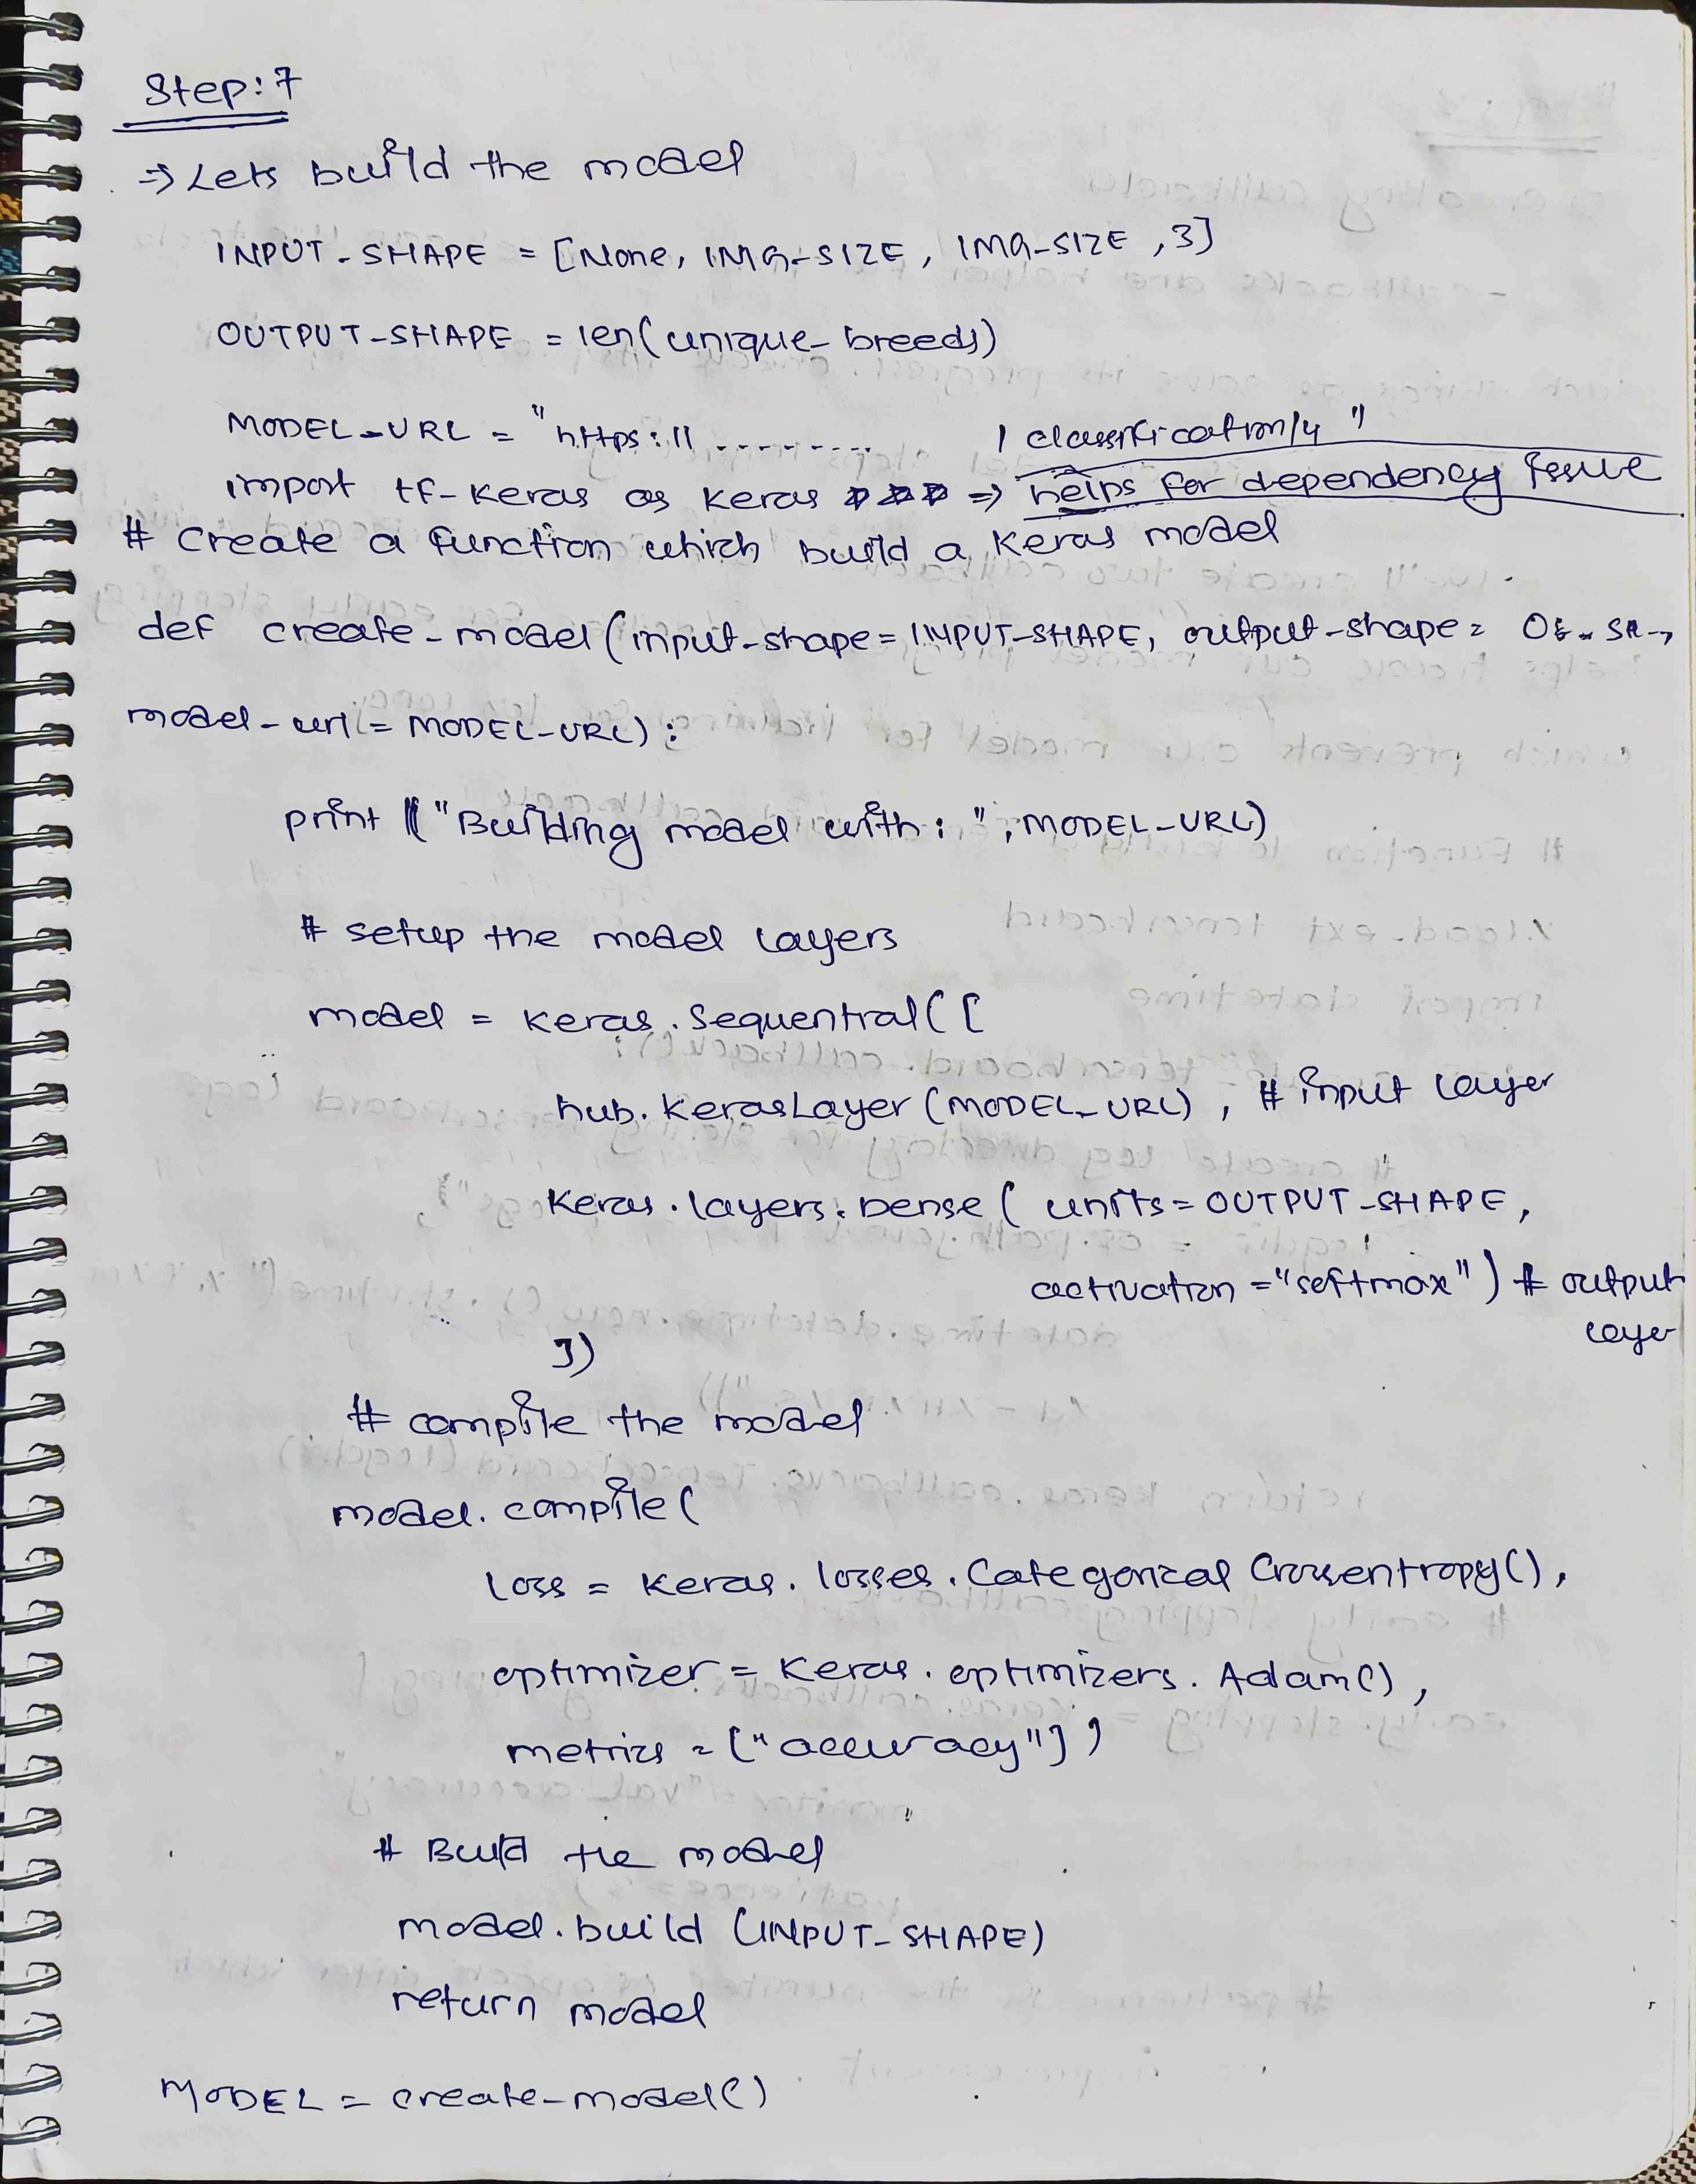 Step:7
⇒ Lets build the model
INPUT_SHAPE = [None, IMG_SIZE, IMG_SIZE, 3]
OUTPUT_SHAPE = len(unique_breeds)
MODEL_URL = "https:// ......... / classification/4"
import tf_keras as keras ⇒ helps for dependency issue
# Create a function which build a Keras model
def create_model(input_shape = INPUT_SHAPE, output_shape =
model_url = MODEL_URL):
print ("Building model with: ", MODEL_URL)
# setup the model layers
model = keras.Sequential([
hub.KerasLayer(MODEL_URL), # input layer
Keras.layers.Dense( units = OUTPUT_SHAPE,
activation = "softmax") # output
layer
])
# compile the model
model.compile(
loss = keras.losses.Categorical Crossentropy(),
optimizer = Keras.optimizers.Adam(),
metrics = ["accuracy"])
# Build the model
model.build (INPUT_SHAPE)
return model
MODEL = create_model()